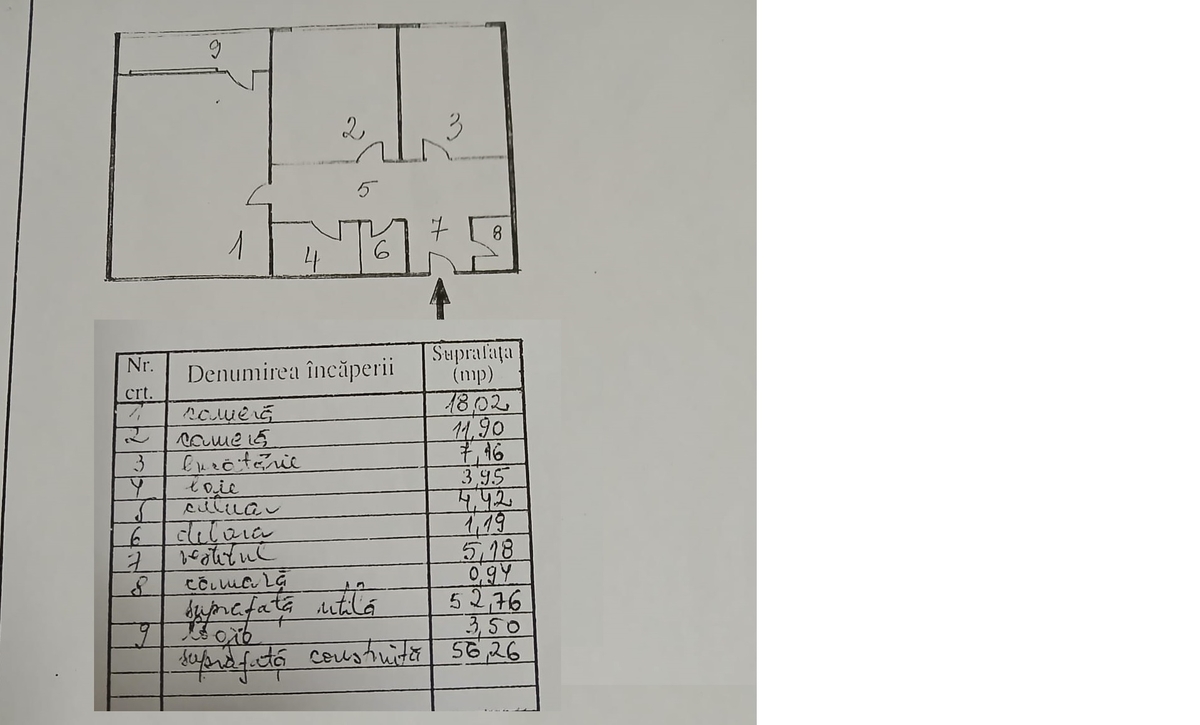 9
2
3
5
7
8
1
4
6
Nr. crt. Denumirea încăperii Suprafața (mp)
1 cameră 18,02
2 cameră 11,90
3 bucătărie 7,16
4 baie 3,95
5 culoar 4,42
6 debara 1,19
7 vestibul 5,18
8 cămară 0,94
suprafață utilă 52,76
9 logie 3,50
suprafață construită 56,26